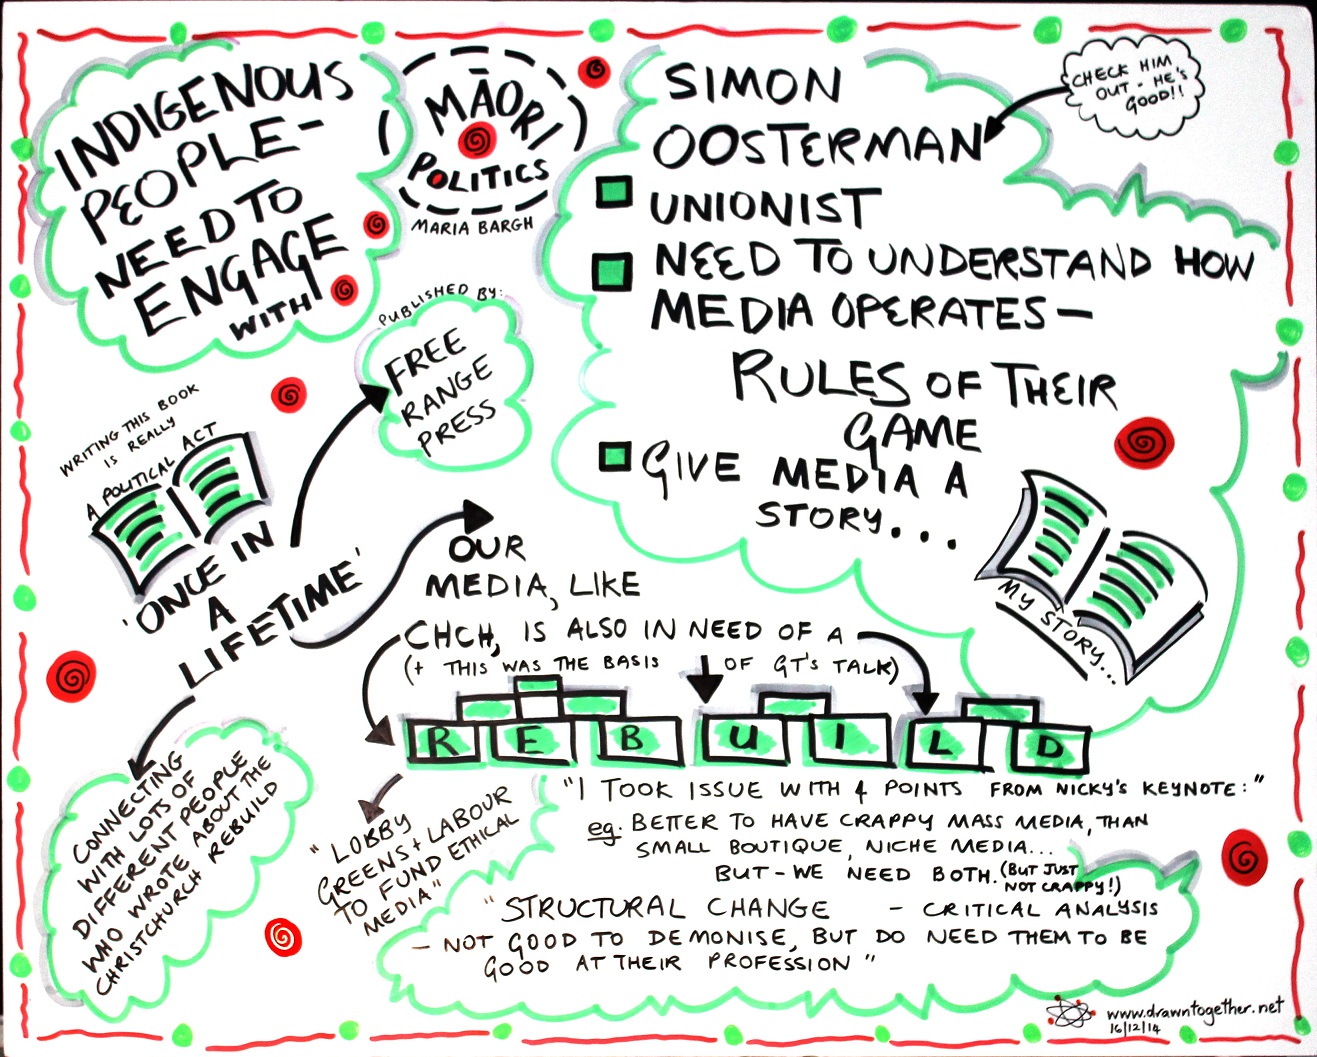 INDIGENOUS
PEOPLE-
NEED TO
ENGAGE
WITH
MĀORI
POLITICS
MARIA BARGH
SIMON
OOSTERMAN
CHECK HIM
OUT - HE'S
GOOD!!
UNIONIST
NEED TO UNDERSTAND HOW
MEDIA OPERATES -
RULES OF THEIR
GAME
GIVE MEDIA A
STORY...
MY STORY...
PUBLISHED BY:
FREE
RANGE
PRESS
WRITING THIS BOOK
IS REALLY
A POLITICAL ACT
'ONCE IN
A
LIFETIME'
OUR
MEDIA, LIKE
CHCH, IS ALSO IN NEED OF A
(+ THIS WAS THE BASIS OF GT'S TALK)
REBUILD
CONNECTING
WITH LOTS OF
DIFFERENT PEOPLE
WHO WROTE ABOUT THE
CHRISTCHURCH REBUILD
"LOBBY
GREENS + LABOUR
TO FUND ETHICAL
MEDIA"
"I TOOK ISSUE WITH 4 POINTS FROM NICKY'S KEYNOTE:"
eg. BETTER TO HAVE CRAPPY MASS MEDIA, THAN
SMALL BOUTIQUE, NICHE MEDIA...
BUT - WE NEED BOTH. (BUT JUST
NOT CRAPPY!)
"STRUCTURAL CHANGE - CRITICAL ANALYSIS
- NOT GOOD TO DEMONISE, BUT DO NEED THEM TO BE
GOOD AT THEIR PROFESSION"
www.drawntogether.net
16/12/14